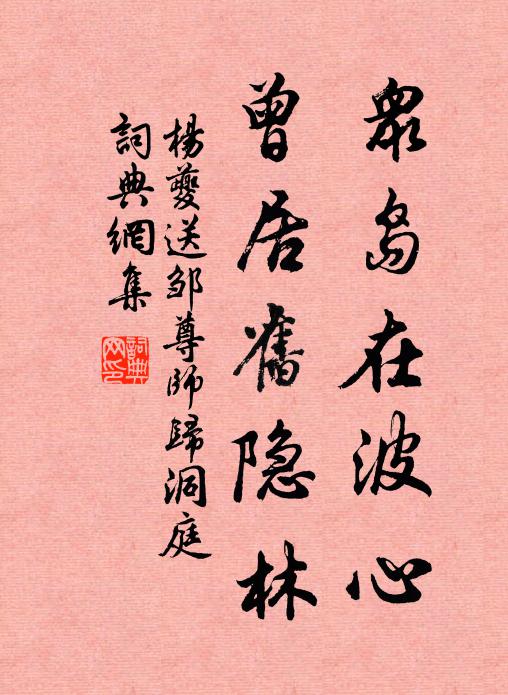 眾島在波心
曾居舊隐林
楊夔送邹尊師歸洞庭
詞典網集
詞典
网印